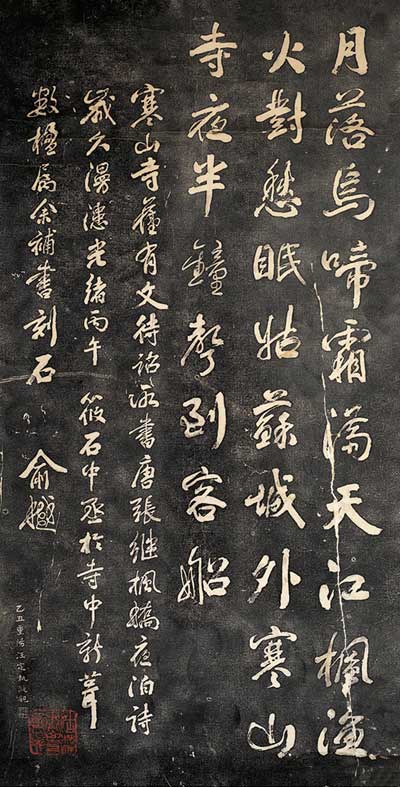 月落烏啼霜滿天江楓漁
火對愁眠姑蘇城外寒山
寺夜半鐘聲到客船
寒山寺舊有文待詔所書唐張繼楓橋夜泊詩
歲久漫漶光緒丙午筱石中丞於寺中新葺
數楹屬余補書刻石 俞樾
乙丑重陽汪定執